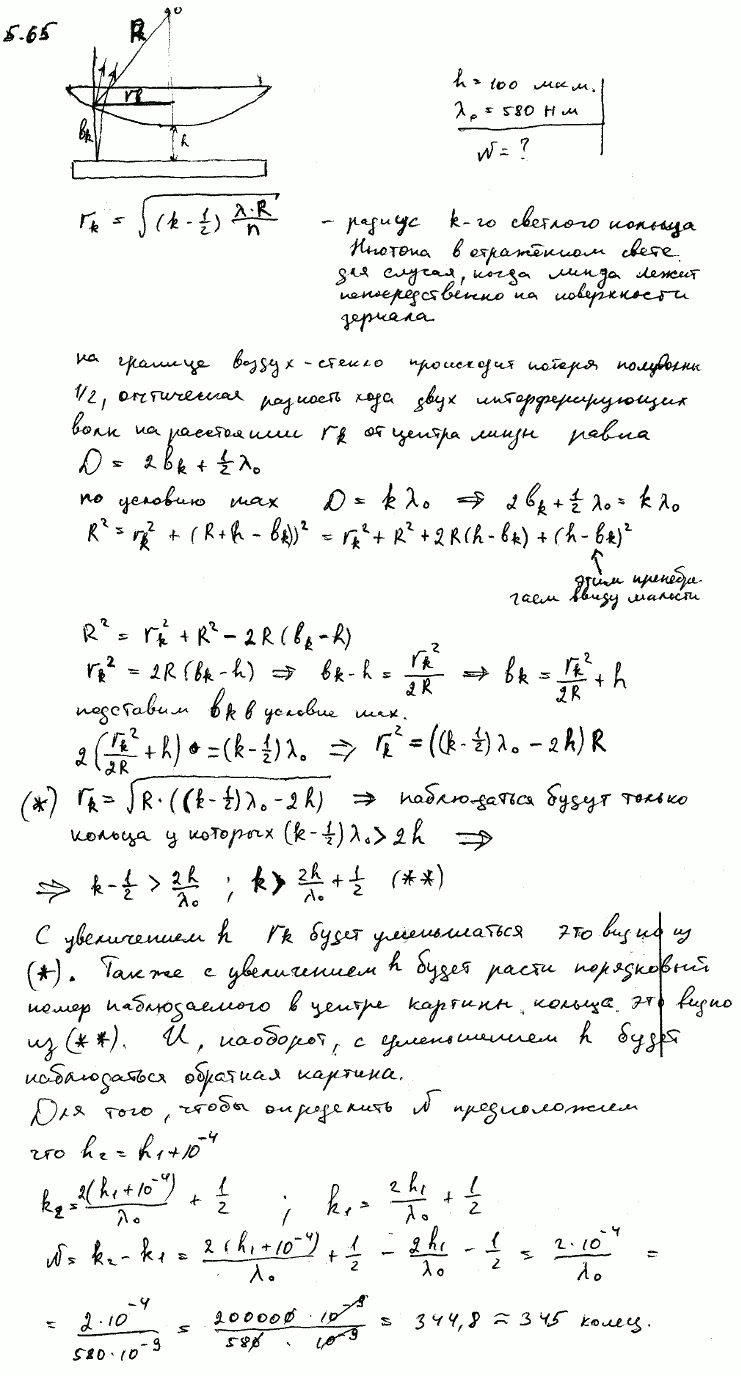 5.65
O
R
r_k
b_k
h
h = 100 мкм.
λ₀ = 580 нм
N = ?
r_k = √((k - 1/2) λ·R/n) - радиус k-го светлого кольца
Ньютона в отражённом свете
для случая, когда линза лежит
непосредственно на поверхности
зеркала
на границе воздух-стекло происходит потеря полуволны
1/2, оптическая разность хода двух интерферирующих
волн на расстоянии r_k от центра линзы равна
D = 2b_k + 1/2 λ₀
по условию max D = kλ₀ ⇒ 2b_k + 1/2 λ₀ = kλ₀
R² = r_k² + (R + h - b_k))² = r_k² + R² + 2R(h - b_k) + (h - b_k)²
этим пренебре-
гаем ввиду малости
R² = r_k² + R² - 2R(b_k - h)
r_k² = 2R(b_k - h) ⇒ b_k - h = r_k²/2R ⇒ b_k = r_k²/2R + h
подставим b_k в условие max.
2(r_k²/2R + h) = (k - 1/2)λ₀ ⇒ r_k² = ((k - 1/2)λ₀ - 2h)R
(*) r_k = √(R·((k - 1/2)λ₀ - 2h)) ⇒ наблюдаться будут только
кольца у которых (k - 1/2)λ₀ > 2h ⇒
⇒ k - 1/2 > 2h/λ₀ ; k > 2h/λ₀ + 1/2 (**)
С увеличением h r_k будет уменьшаться это видно из
(*). Также с увеличением h будет расти порядковый
номер наблюдаемого в центре картины кольца. это видно
из (**). И, наоборот, с уменьшением h будет
наблюдаться обратная картина.
Для того, чтобы определить N предположим
что h₂ = h₁ + 10⁻⁴
k₂ = 2(h₁ + 10⁻⁴)/λ₀ + 1/2 ; k₁ = 2h₁/λ₀ + 1/2
N = k₂ - k₁ = 2(h₁ + 10⁻⁴)/λ₀ + 1/2 - 2h₁/λ₀ - 1/2 = 2·10⁻⁴/λ₀ =
= 2·10⁻⁴/580·10⁻⁹ = 200000·10⁻⁹/580·10⁻⁹ = 344,8 ≈ 345 колец.